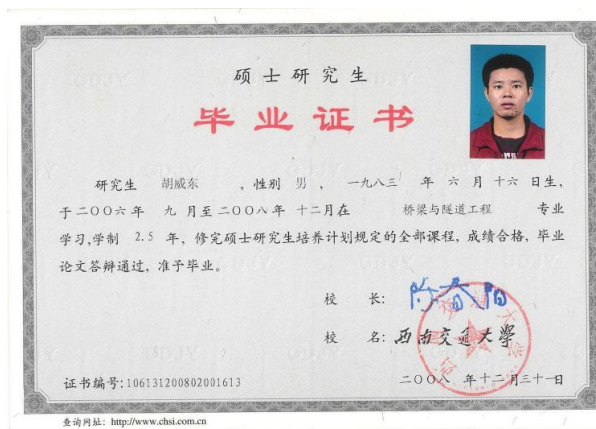 硕士研究生
毕业证书
研究生 胡威东 ,性别 男 , 一九八三 年 六 月 十六 日生,
于二〇〇六年 九 月至二〇〇八年 十二月在 桥梁与隧道工程 专业
学习,学制 2.5 年, 修完硕士研究生培养计划规定的全部课程, 成绩合格, 毕业
论文答辩通过, 准予毕业。
校 长:
校 名: 西南交通大學
证书编号:106131200802001613
二〇〇八 年十二月三十一日
查询网址: http://www.chsi.com.cn